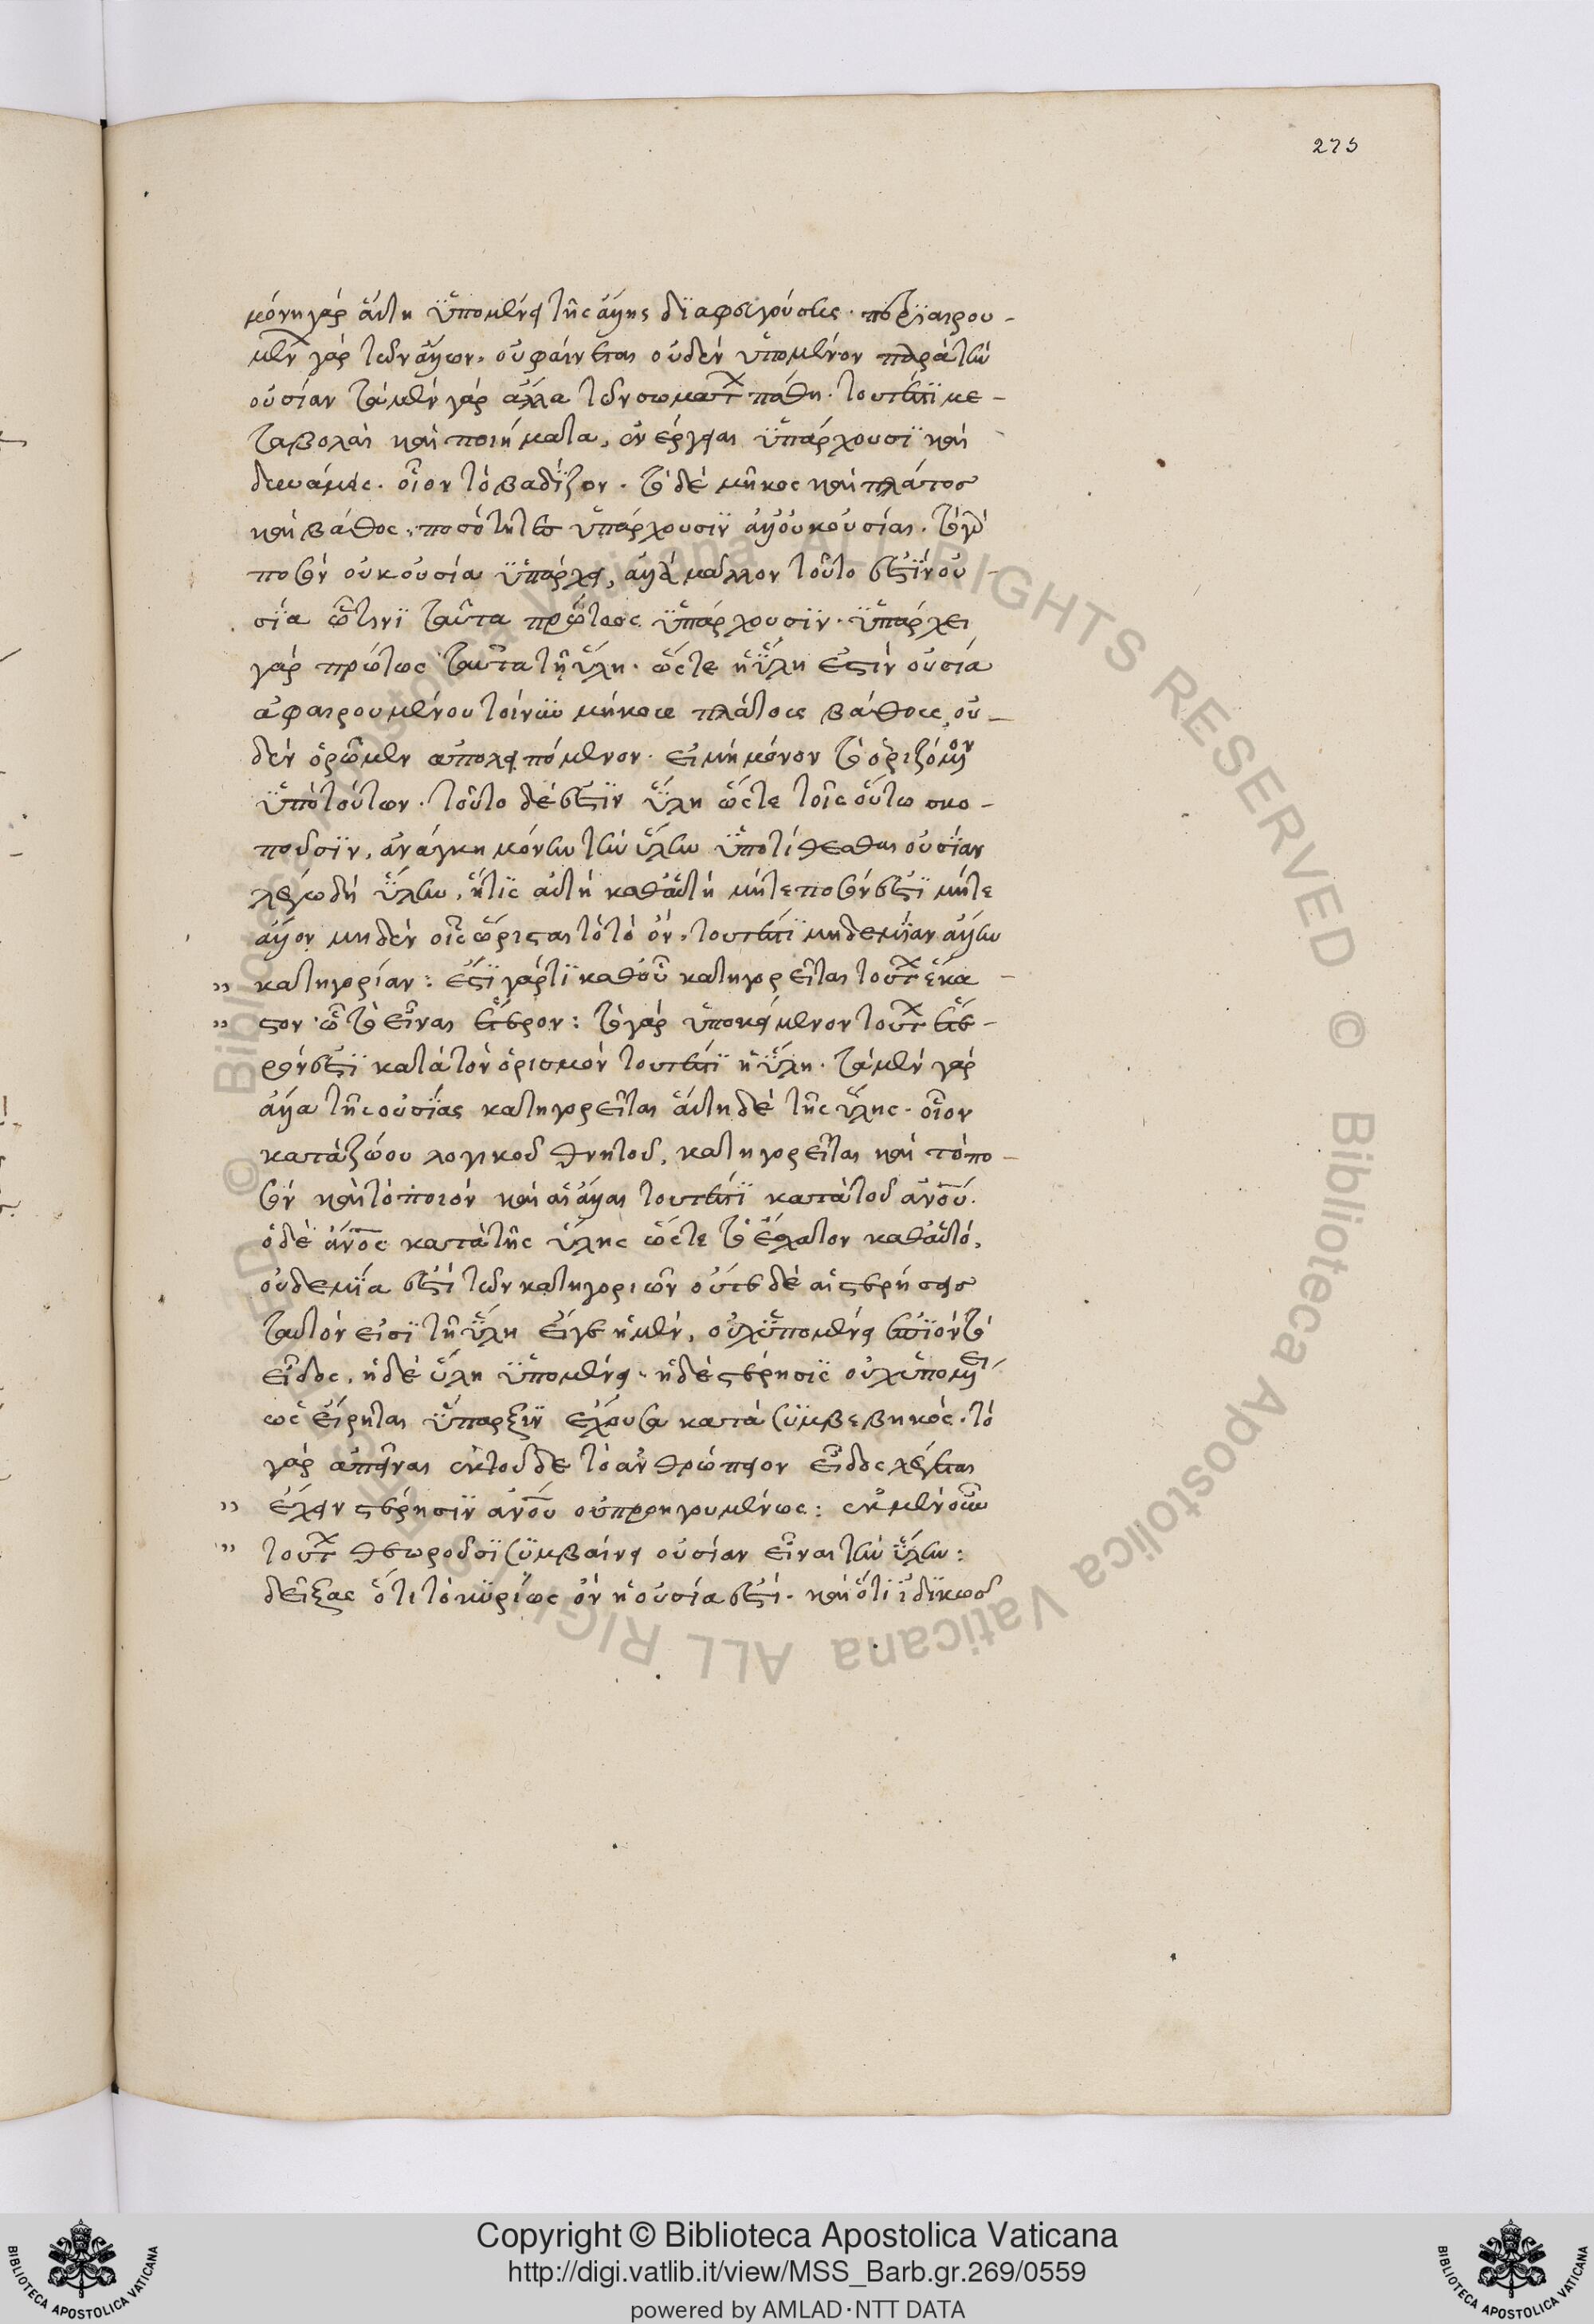 273
μόνη γάρ αὕτη ὑπομένει τῆς ἄλλης διαφθειρούσης· περιαιρου-
μένων γάρ τῶν ἄλλων, οὐ φαίνεται οὐδὲν ὑπομένον παρὰ τὴν
οὐσίαν τὰ μὲν γάρ ἄλλα τῶν σωμάτων πάθη· τουτέστι με-
ταβολαὶ καὶ ποιήματα, ἐνέργειαι ὑπάρχουσι καὶ
δυνάμεις· οἷον τὸ βαδίζον· τὸ δὲ μῆκος καὶ πλάτος
καὶ βάθος· ποσότητες ὑπάρχουσιν ἀλλ' οὐκ οὐσίαι· τὸ γὰρ
ποσὸν οὐκ οὐσία ὑπάρχει, ἀλλὰ μᾶλλον τοῦτο ἐστὶν οὐ-
σία ᾧτινι ταῦτα πρώτως ὑπάρχουσιν· ὑπάρχει
γάρ πρώτως ταῦτα τῇ ὕλῃ· ὥστε ἡ ὕλη ἐστὶν οὐσία
ἀφαιρουμένου τοίνυν μήκους πλάτους βάθους, οὐ-
δὲν ὁρῶμεν ἀπολειπόμενον· εἰ μὴ μόνον τὸ ὁριζόμενον
ὑπὸ τούτων· τοῦτο δέ ἐστιν ὕλη ὥστε τοῖς οὕτω σκο-
ποῦσιν, ἀνάγκη μόνην τὴν ὕλην ὑποτίθεσθαι οὐσίαν
λέγω δὴ ὕλην, ἥτις αὐτὴ καθ' αὑτὴ μήτε ποσὸν ἐστὶ μήτε
ἄλλον μηδὲν οἷς ὥρισται τὸ τὸ ὄν· τουτέστι μηδεμίαν ἄλλην
» κατηγορίαν: ἔστι γάρ τι καθ' οὗ κατηγορεῖται τούτων ἕκα-
» στον· ᾧ τὸ εἶναι ἕτερον: τὸ γάρ ὑποκείμενον τούτων ἕτε-
ρόν ἐστι κατὰ τὸν ὁρισμόν τουτέστι ἡ ὕλη· τὰ μὲν γάρ
ἄλλα τῆς οὐσίας κατηγορεῖται αὕτη δὲ τῆς ὕλης· οἷον
κατὰ ζώου λογικοῦ θνητοῦ, κατηγορεῖται καὶ τὸ πο-
σὸν καὶ τὸ ποιόν καὶ αἱ ἄλλαι τουτέστι κατὰ τοῦ ἀνου.
ὁ δὲ ἄνος κατὰ τῆς ὕλης ὥστε τὸ ἔσχατον καθ' αὑτό,
οὐδεμία ἐστὶ τῶν κατηγοριῶν οὔτε δὲ αἱ στερήσεις
ταὐτόν εἰσὶ τῇ ὕλῃ εἴγε ἡ μὲν, οὐχ ὑπομένει ἐπιὸν τὸ
εἶδος, ἡ δὲ ὕλη ὑπομένει· ἡ δὲ στέρησις οὐχ ὑπομένει
ὡς εἴρηται ὕπαρξιν ἔχουσα κατὰ συμβεβηκός· τὸ
γάρ ἀπεῖναι ἐκ τοῦδε τὸ ἀνθρώπειον εἶδος λέγεται
» ἔχειν στέρησιν ἀνου οὐ προηγουμένως: ἐκ μὲν οὖν
» τούτων θεωροῦσι συμβαίνει οὐσίαν εἶναι τὴν ὕλην:
δείξας ὅτι τὸ κυρίως ὂν ἡ οὐσία ἐστὶ· καὶ ὅτι ἰδικῶς
Copyright © Biblioteca Apostolica Vaticana
http://digi.vatlib.it/view/MSS_Barb.gr.269/0559
powered by AMLAD·NTT DATA